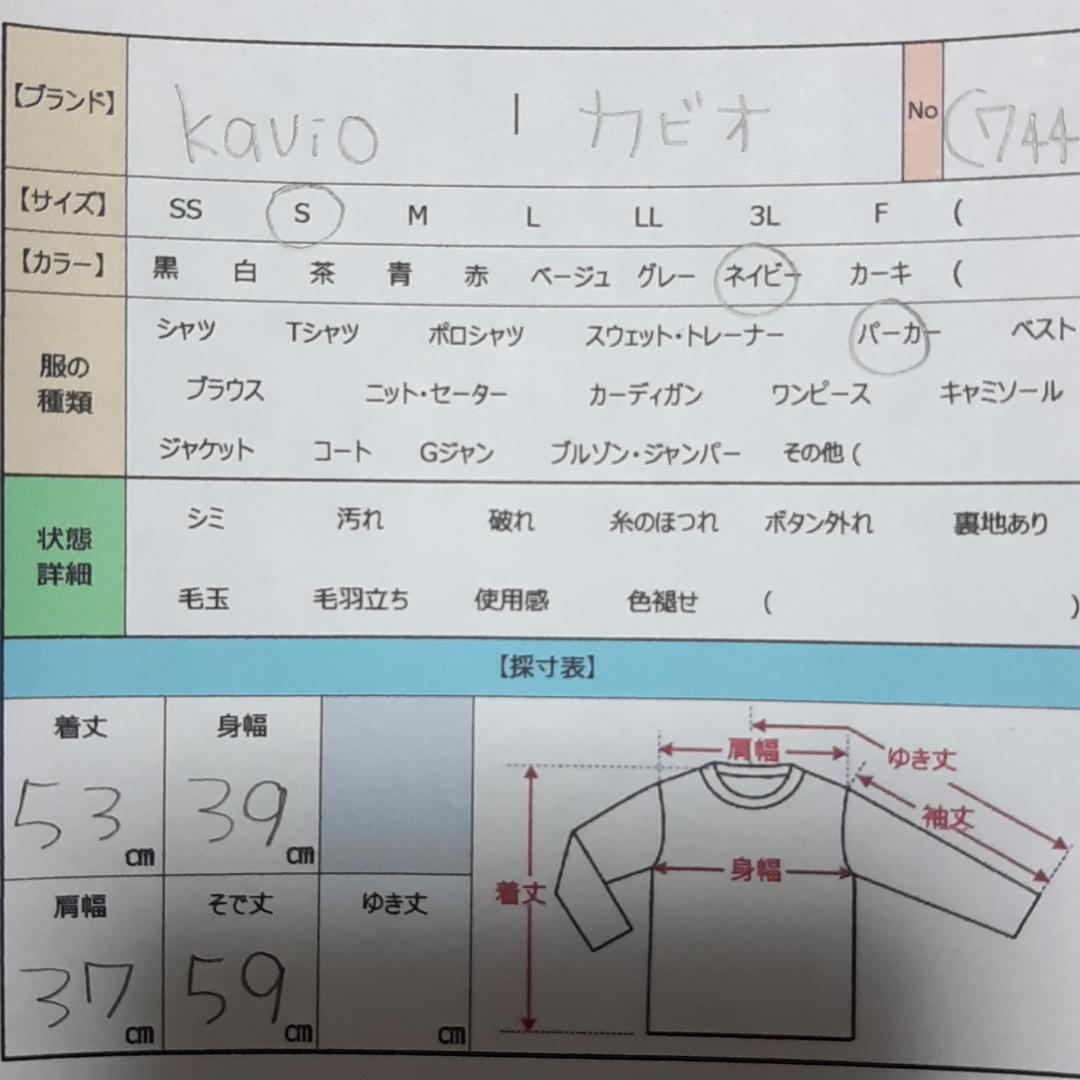 【ブランド】 kavio | カビオ No (744
【サイズ】 SS S M L LL 3L F (
【カラー】 黒 白 茶 青 赤 ベージュ グレー ネイビー カーキ (
服の種類
シャツ Tシャツ ポロシャツ スウェット・トレーナー パーカー ベスト
ブラウス ニット・セーター カーディガン ワンピース キャミソール
ジャケット コート Gジャン ブルゾン・ジャンパー その他 (
状態詳細
シミ 汚れ 破れ 糸のほつれ ボタン外れ 裏地あり
毛玉 毛羽立ち 使用感 色褪せ ( )
【採寸表】
着丈 身幅
53cm 39cm
肩幅 そで丈 ゆき丈
37cm 59cm cm
肩幅 ゆき丈
袖丈
身幅
着丈